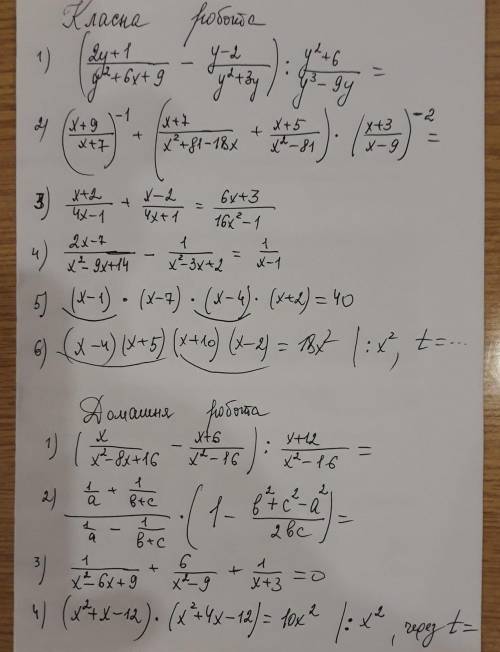 Класна робота
1) ((2y+1)/(y²+6x+9) - (y-2)/(y²+3y)) : (y²+6)/(y³-9y) =
2) ((x+9)/(x+7))⁻¹ + ((x+7)/(x²+81-18x) + (x+5)/(x²-81)) · ((x+3)/(x-9))⁻² =
3) (x+2)/(4x-1) + (x-2)/(4x+1) = (6x+3)/(16x²-1)
4) (2x-7)/(x²-9x+14) - 1/(x²-3x+2) = 1/(x-1)
5) (x-1) · (x-7) · (x-4) · (x+2) = 40
6) (x-4)(x+5)(x+10)(x-2) = 18x² |: x², t=...
Домашня робота
1) (x/(x²-8x+16) - (x+6)/(x²-16)) : (x+12)/(x²-16) =
2) (1/a + 1/(b+c))/(1/a - 1/(b+c)) · (1 - (b²+c²-a²)/(2bc)) =
3) 1/(x²-6x+9) + 6/(x²-9) + 1/(x+3) = 0
4) (x²+x-12) · (x²+4x-12) = 10x² |: x², через t=